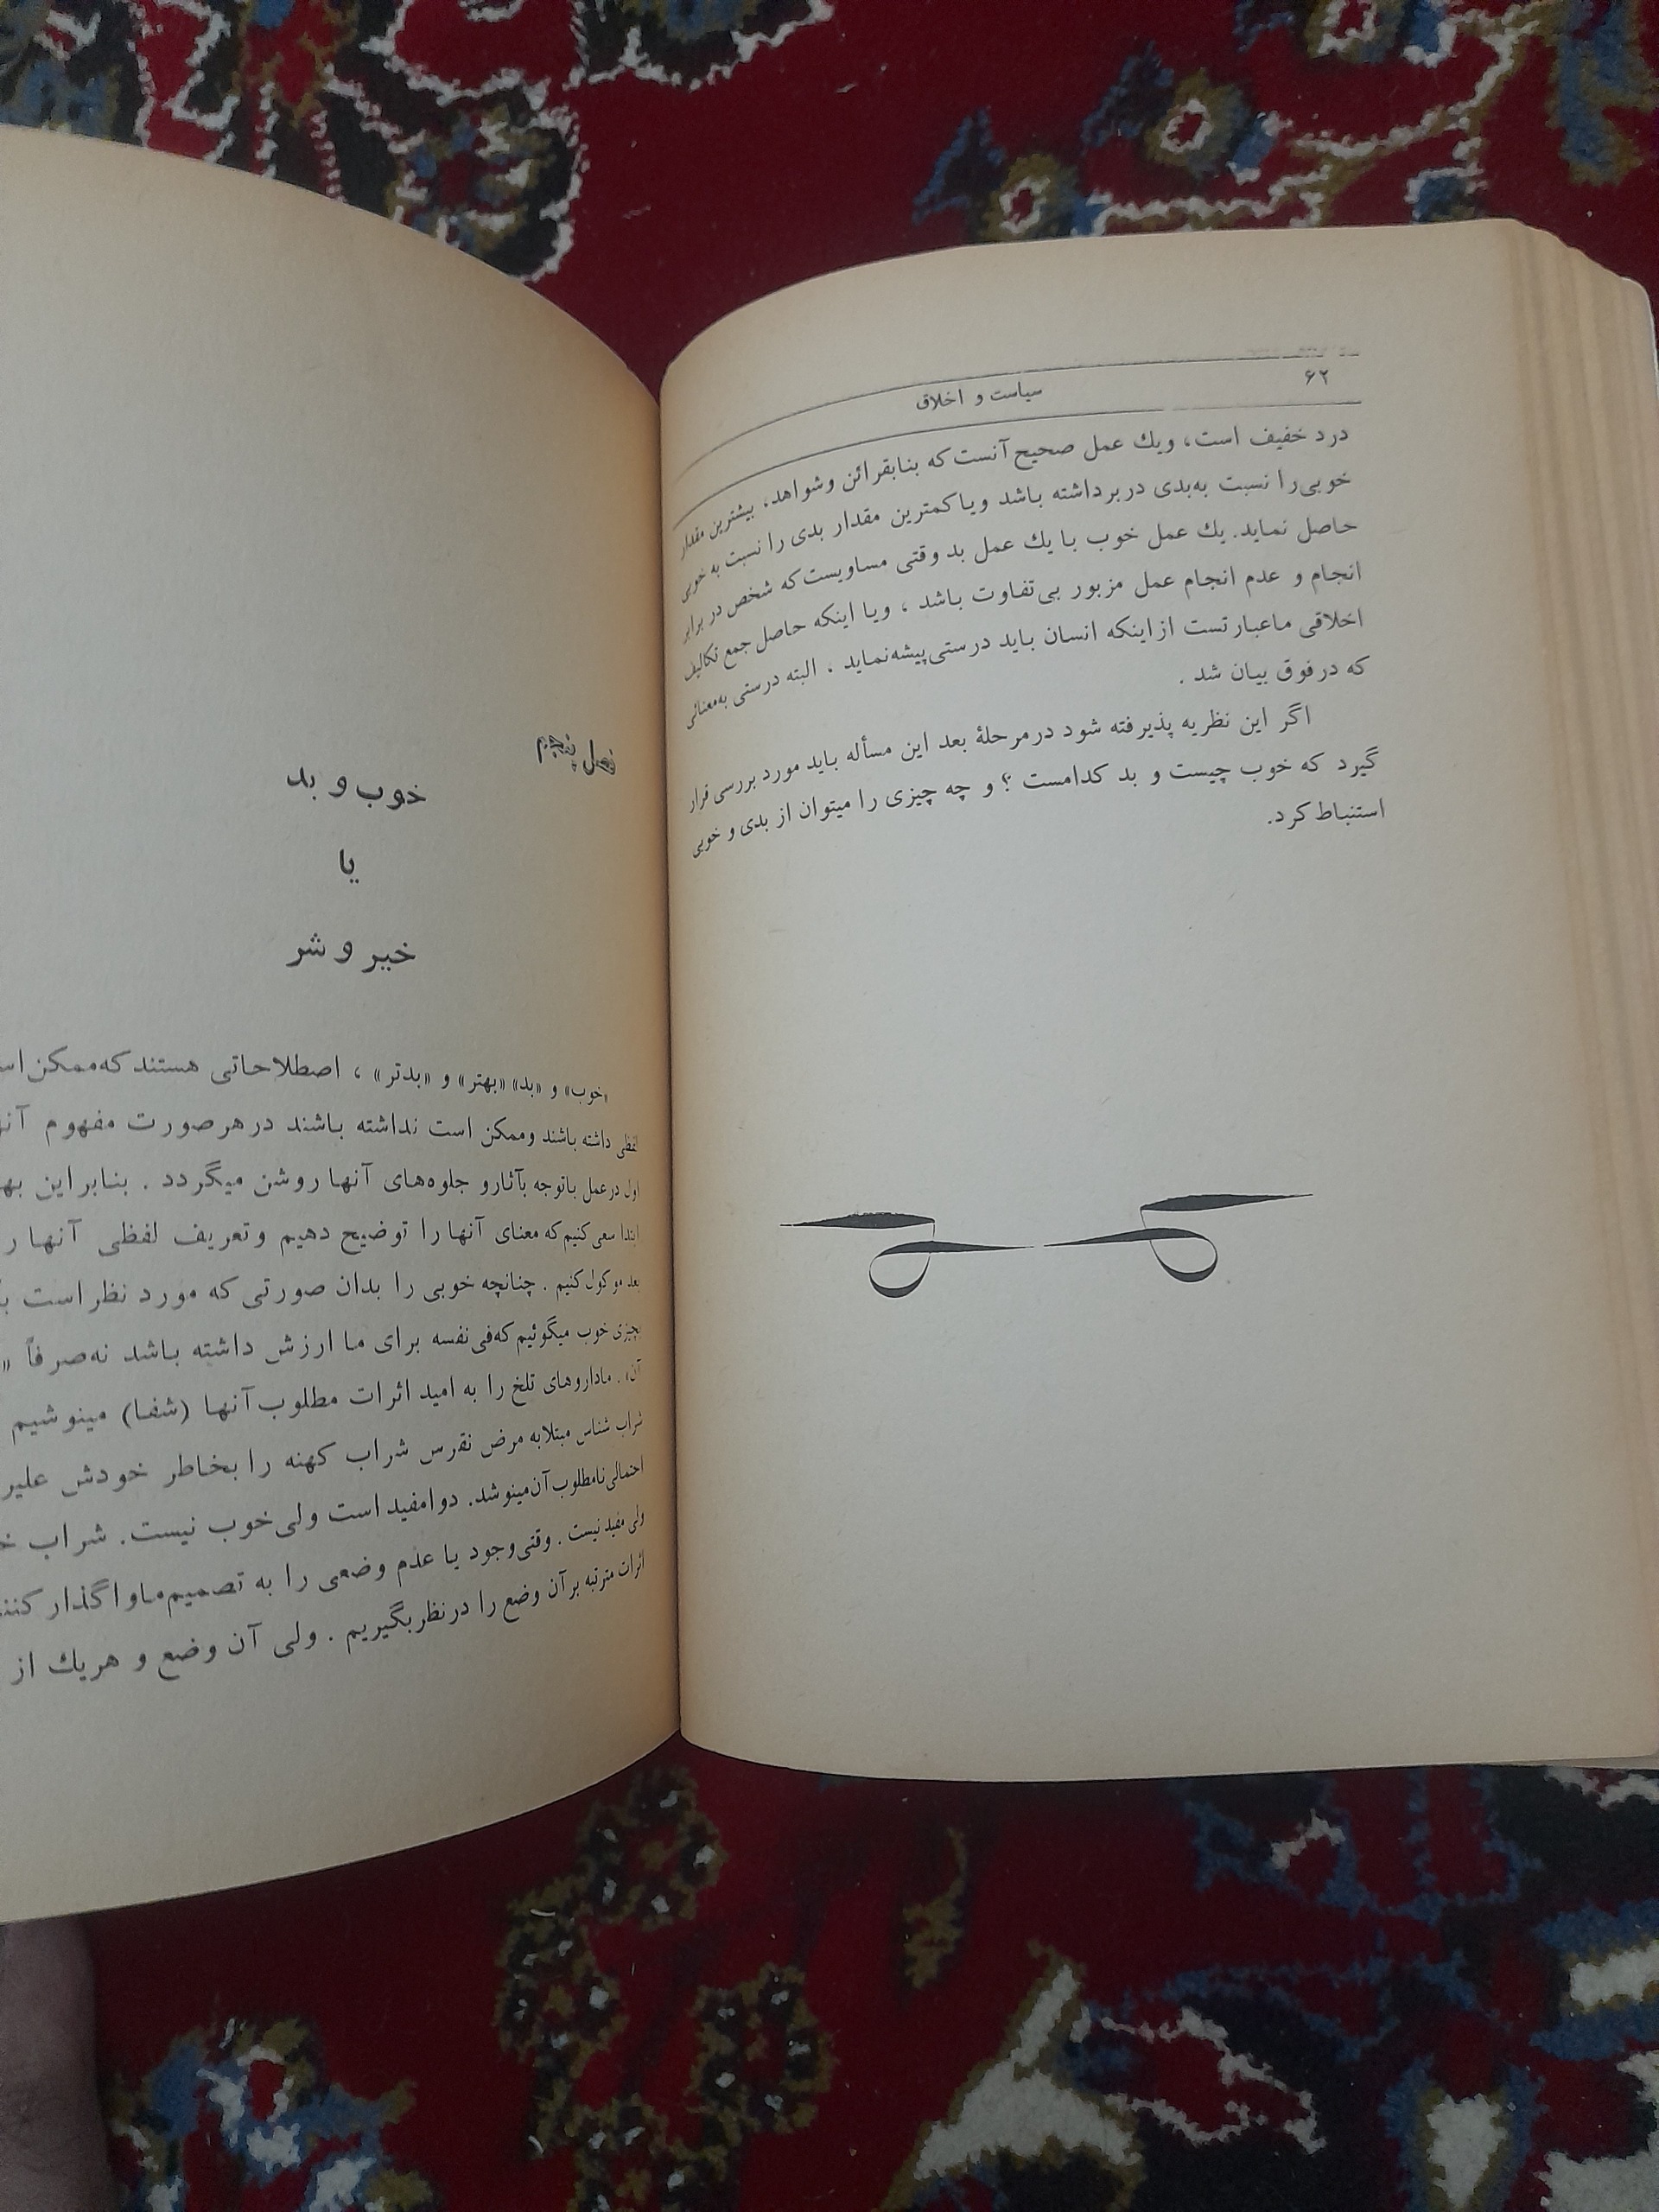 ۶۲
سیاست و اخلاق
درد خفیف است، ویك عمل صحیح آنست که بنابقرائن وشواهد، بیشترین مقدار
خوبی‌را نسبت به‌بدی دربرداشته باشد ویاکمترین مقدار بدی را نسبت به خوبی
حاصل نماید. یك عمل خوب با یك عمل بد وقتی مساویست‌که شخص در برابر
انجام و عدم انجام عمل مزبور بی‌تفاوت باشد ، ویا اینکه حاصل جمع تکالیف
اخلاقی ماعبارتست ازاینکه انسان باید درستی‌پیشه‌نماید ، البته درستی به‌معنائی
که درفوق بیان شد .
اگر این نظریه پذیرفته شود درمرحلهٔ بعد این مسأله باید مورد بررسی قرار
گیرد که خوب چیست و بد کدامست ؟ و چه چیزی را میتوان از بدی و خوبی
استنباط کرد.
فصل پنجم
خوب و بد
یا
خیر و شر
«خوب» و «بد» «بهتر» و «بدتر» ، اصطلاحاتی هستند که‌ممکن
لفظی داشته باشند وممکن است نداشته باشند درهرصورت مفهوم
اول درعمل باتوجه بآثارو جلوه‌های آنها روشن میگردد . بنابراین
ابتدا سعی کنیم‌که معنای آنها را توضیح دهیم وتعریف لفظی آنها
بعد موکول کنیم . چنانچه خوبی را بدان صورتی که مورد نظر است
بچیزی خوب میگوئیم که‌فی‌نفسه برای ما ارزش داشته باشد نه‌صرفاً «
آن» . ماداروهای تلخ را به امید اثرات مطلوب آنها (شفا) مینوشیم
شراب شناس مبتلابه مرض نقرس شراب کهنه را بخاطر خودش
احتمالی‌نامطلوب آن‌مینوشد. دوامفید است ولی‌خوب نیست. شراب
ولی مفید نیست . وقتی‌وجود یا عدم وضعی را به تصمیم‌ماواگذار
اثرات مترتبه برآن وضع را درنظربگیریم . ولی آن وضع و هریك از